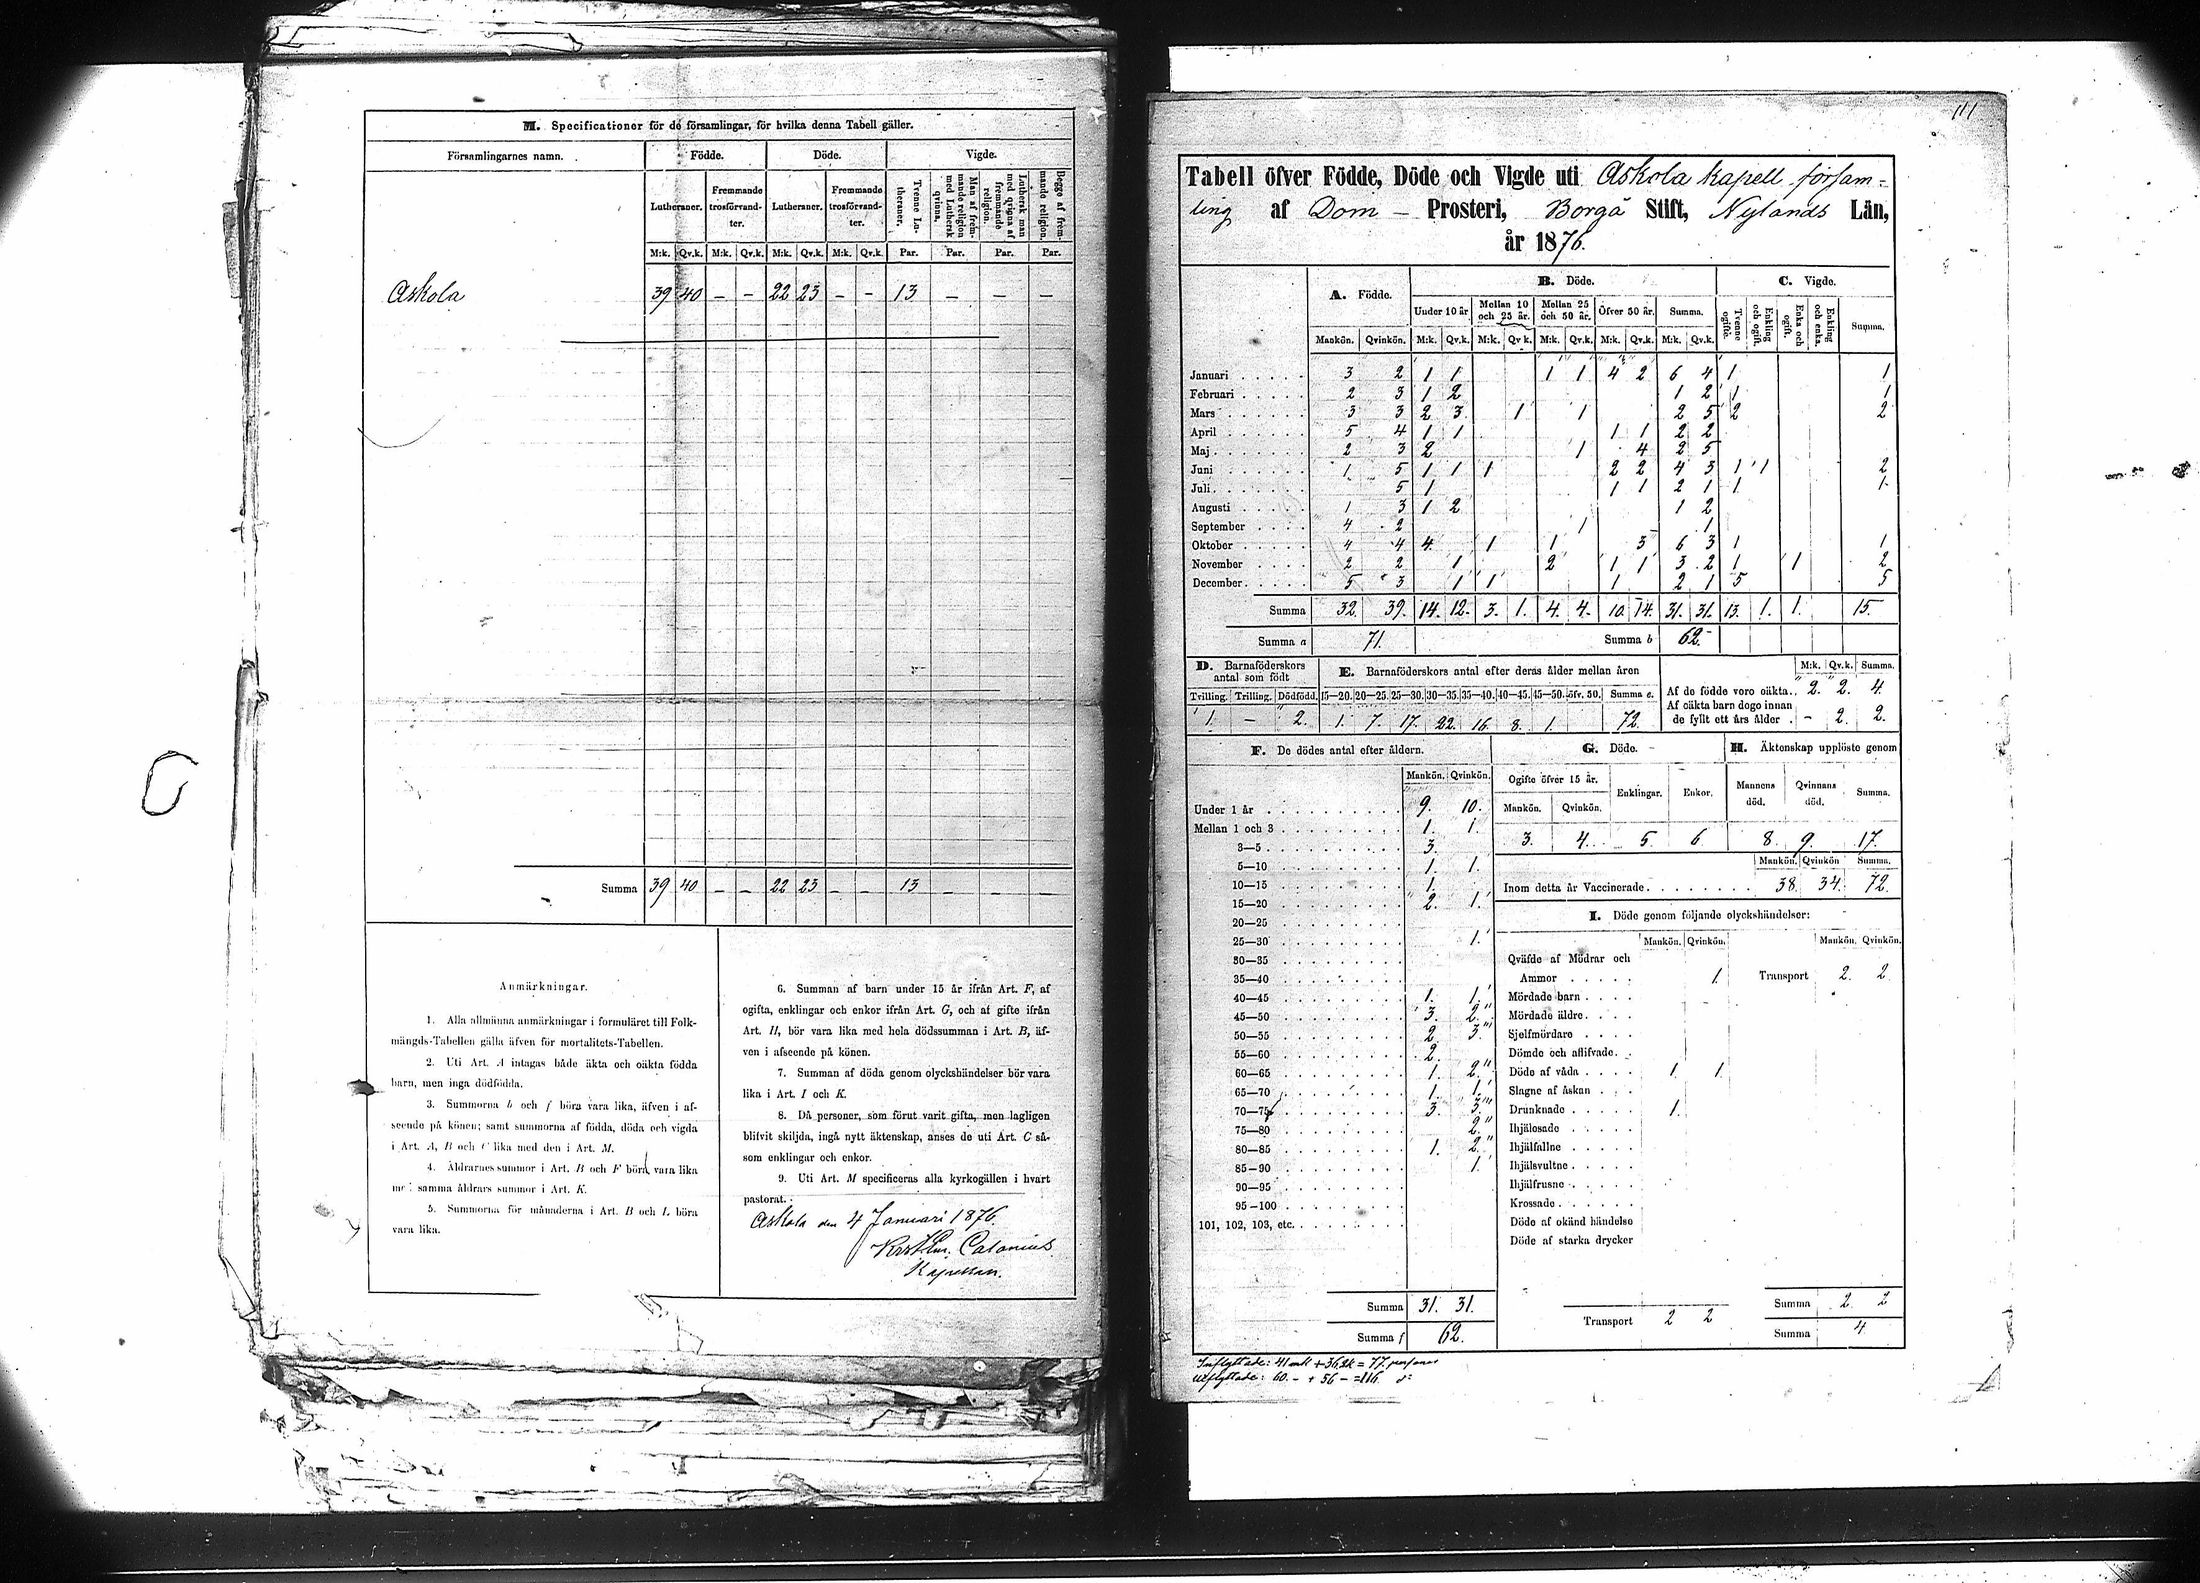 M. Specificationer för de församlingar, för hvilka denna Tabell gäller.
Församlingarnes namn. Födde. Döde. Vigde.
Lutheraner. Fremmande trosförvandter. Lutheraner. Fremmande trosförvandter. Tvenne Lutheraner. Man af fremmande religion med Luthersk qvinna. Luthersk man med qvinna af fremmande religion. Begge af fremmande religion.
M:k. Qv.k. M:k. Qv.k. M:k. Qv.k. M:k. Qv.k. Par. Par. Par. Par.
Askola 39 40 – – 22 23 – – 13 – – –
Summa 39 40 – – 22 23 – – 13 – – –
Anmärkningar.
1. Alla allmänna anmärkningar i formuläret till Folk-
mängds-Tabellen gälla äfven för mortalitets-Tabellen.
2. Uti Art. A intagas både äkta och oäkta födda
barn, men inga dödfödda.
3. Summorna b och f böra vara lika, äfven i af-
seende på könen; samt summorna af födda, döda och vigda
i Art. A, B och C lika med den i Art. M.
4. Åldrarnes summor i Art. B och F böra vara lika
med samma åldrars summor i Art. K.
5. Summorna för månaderna i Art. B och L böra
vara lika.
6. Summan af barn under 15 år ifrån Art. F, af
ogifta, enklingar och enkor ifrån Art. G, och af gifte ifrån
Art. H, bör vara lika med hela dödssumman i Art. B, äf-
ven i afseende på könen.
7. Summan af döda genom olyckshändelser bör vara
lika i Art. I och K.
8. Då personer, som förut varit gifta, men lagligen
blifvit skiljda, ingå nytt äktenskap, anses de uti Art. C så-
som enklingar och enkor.
9. Uti Art. M specificeras alla kyrkogällen i hvart
pastorat.
Askola den 4 Januari 1876.
Calonius
Kapellan.
111
Tabell öfver Födde, Döde och Vigde uti Askola kapell församling
af Dom – Prosteri, Borgå Stift, Nylands Län,
år 1876.
A. Födde. B. Döde. C. Vigde.
Under 10 år Mellan 10 och 25 år. Mellan 25 och 50 år. Öfver 50 år. Summa. Tvenne ogifte. Enkling och ogift. Enka och ogift. Enkling och enka. Summa.
Mankön. Qvinkön. M:k. Qv.k. M:k. Qv.k. M:k. Qv.k. M:k. Qv.k. M:k. Qv.k.
Januari 3 2 1 1 1 1 4 2 6 4 1 1
Februari 2 3 1 2 1 2 1 1
Mars 3 3 2 3 1 1 2 5 2 2
April 5 4 1 1 1 1 2 2
Maj 2 3 2 1 4 2 5
Juni 1 5 1 1 1 2 2 4 3 1 1 2
Juli 5 1 1 1 2 1 1 1
Augusti 1 3 1 2 1 2
September 4 2 1 1
Oktober 4 4 4 1 1 3 6 3 1 1
November 2 2 1 2 1 1 3 2 1 1 2
December 5 3 1 1 1 2 1 5 5
Summa 32. 39. 14. 12. 3. 1. 4. 4. 10. 14. 31. 31. 13. 1. 1. 15.
Summa a 71. Summa b 62.
D. Barnaföderskors antal som födt
Tvilling. Trilling. Dödfödd.
1. – 2.
E. Barnaföderskors antal efter deras ålder mellan åren
15–20. 20–25. 25–30. 30–35. 35–40. 40–45. 45–50. öfv. 50. Summa e.
1. 7. 17. 22. 16. 8. 1. 72.
M:k. Qv.k. Summa.
Af de födde voro oäkta. 2. 2. 4.
Af oäkta barn dogo innan
de fyllt ett års ålder . – 2. 2.
F. De dödes antal efter åldern.
Mankön. Qvinkön.
Under 1 år 9. 10.
Mellan 1 och 3 1. 1.
3–5 3.
5–10 1. 1.
10–15 1.
15–20 2. 1.
20–25
25–30 1.
30–35
35–40
40–45 1. 1.
45–50 3. 2.
50–55 2. 3.
55–60 2.
60–65 1. 2.
65–70 1. 1.
70–75 3. 3.
75–80 2.
80–85 1. 2.
85–90 1.
90–95
95–100
101, 102, 103, etc.
Summa 31. 31.
Summa f 62.
G. Döde.
Ogifte öfver 15 år. Enklingar. Enkor.
Mankön. Qvinkön.
3. 4. 5. 6.
H. Äktenskap upplöste genom
Mannens död. Qvinnans död. Summa.
8. 9. 17.
Mankön. Qvinkön Summa.
Inom detta år Vaccinerade 38. 34. 72.
I. Döde genom följande olyckshändelser:
Mankön. Qvinkön. Mankön. Qvinkön.
Qväfde af Mödrar och
Ammor 1. Transport 2. 2
Mördade barn
Mördade äldre
Sjelfmördare
Dömde och aflifvade
Döde af våda 1. 1.
Slagne af åskan
Drunknade 1.
Ihjälosade
Ihjälfallne
Ihjälsvultne
Ihjälfrusne
Krossade
Döde af okänd händelse
Döde af starka drycker
Transport 2 2
Summa 2. 2
Summa 4
Inflyttade: 41 mk + 36 qk = 77 personer
utflyttade: 60 – + 56 – = 116 d: